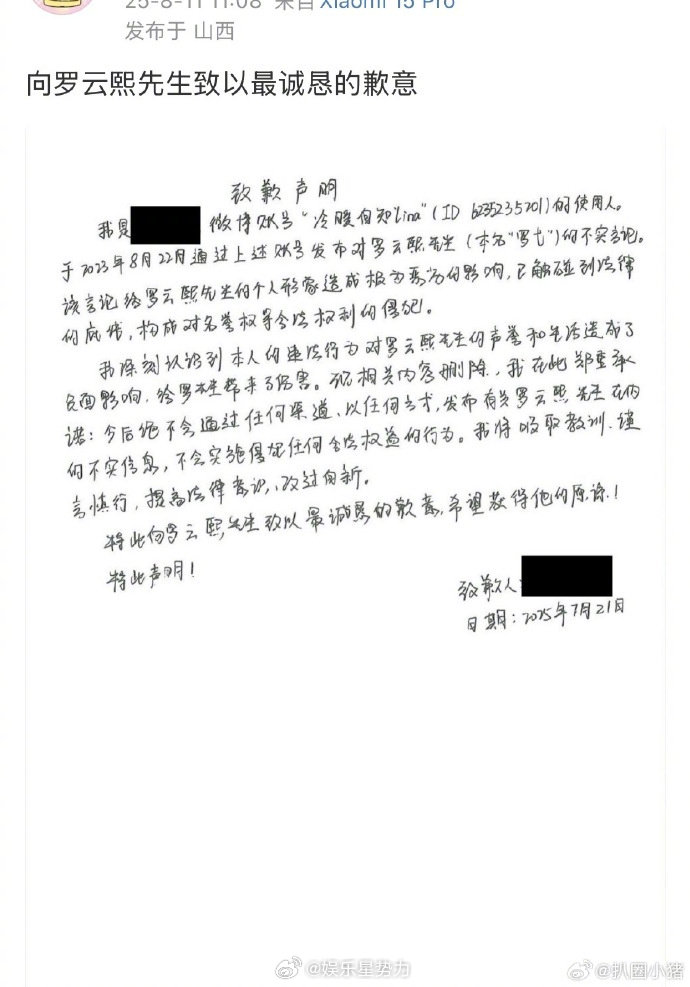 25-8-11 11:08 来自 Xiaomi 15 Pro
发布于 山西
向罗云熙先生致以最诚恳的歉意
致歉声明
我是 微博账号“冷暖自知Lina”(ID 6235235201)的使用人。
于2023年8月22日通过上述账号发布对罗云熙先生(本名“罗弋”)的不实言论。
该言论给罗云熙先生的个人形象造成极为恶劣的影响,已触碰到法律
的底线,构成对名誉权等合法权利的侵犯。
我深刻认识到本人的违法行为对罗云熙先生的声誉和生活造成了
负面影响,给罗先生带来了伤害。现相关内容删除,我在此郑重承
诺:今后绝不会通过任何渠道、以任何方式,发布有关罗云熙先生在内
的不实信息,不会实施侵犯任何合法权益的行为。我将吸取教训、谨
言慎行,提高法律意识,改过自新。
特此向罗云熙先生致以最诚恳的歉意,希望获得他的原谅!
特此声明!
致歉人:
日期:2025年7月21日
@娱乐星势力
@扒圈小猪